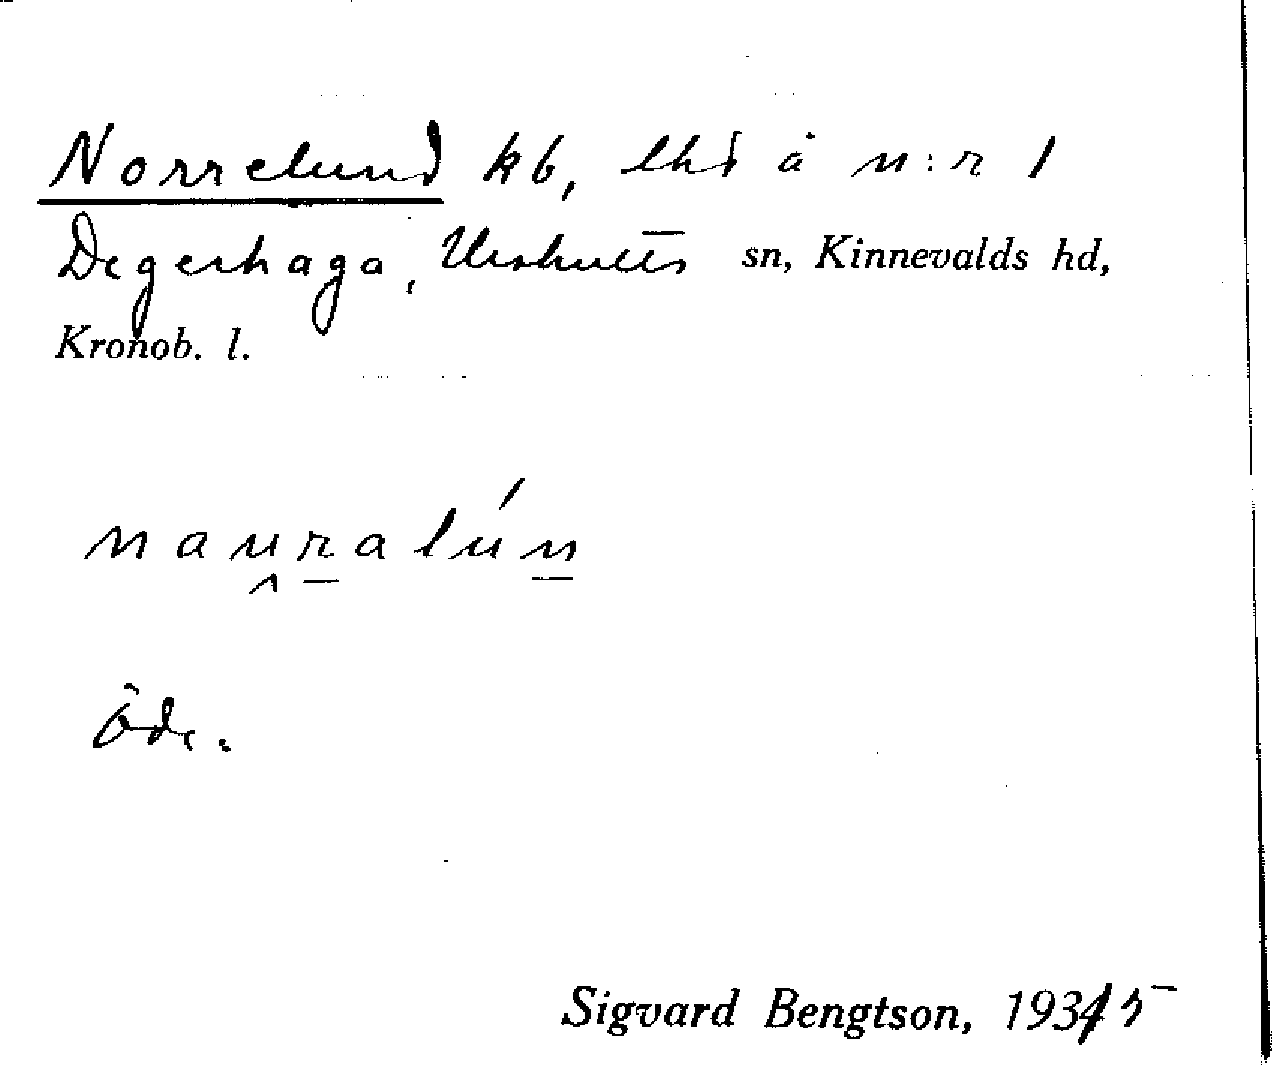 Norrelund kb, lhd å n:r 1
Degerhaga, Urshults sn, Kinnevalds hd,
Kronob. l.
nau̯ralún
öde.
Sigvard Bengtson, 1935